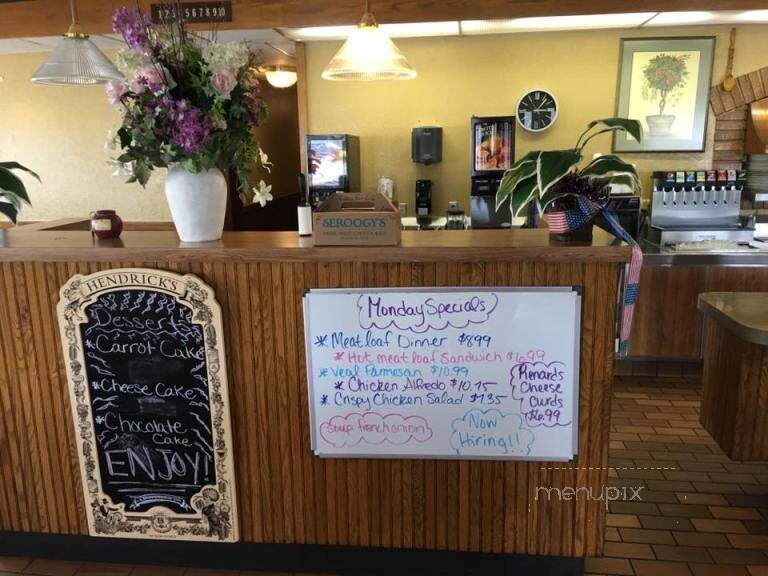 1 2 3 4 5 6 7 8 9 10
SEROOGY'S
HENDRICK'S
Desserts
*Carrot Cake
*Cheese Cake
*Chocolate
Cake
ENJOY!
Monday Specials
* Meatloaf Dinner $8.99
* Hot meatloaf Sandwich $6.99
* Veal Parmesan $10.99
* Chicken Alfredo $10.75
* Crispy Chicken Salad $7.95
Renards
Cheese
Curds
$6.99
Soup: french onion
Now
Hiring!!
menupix